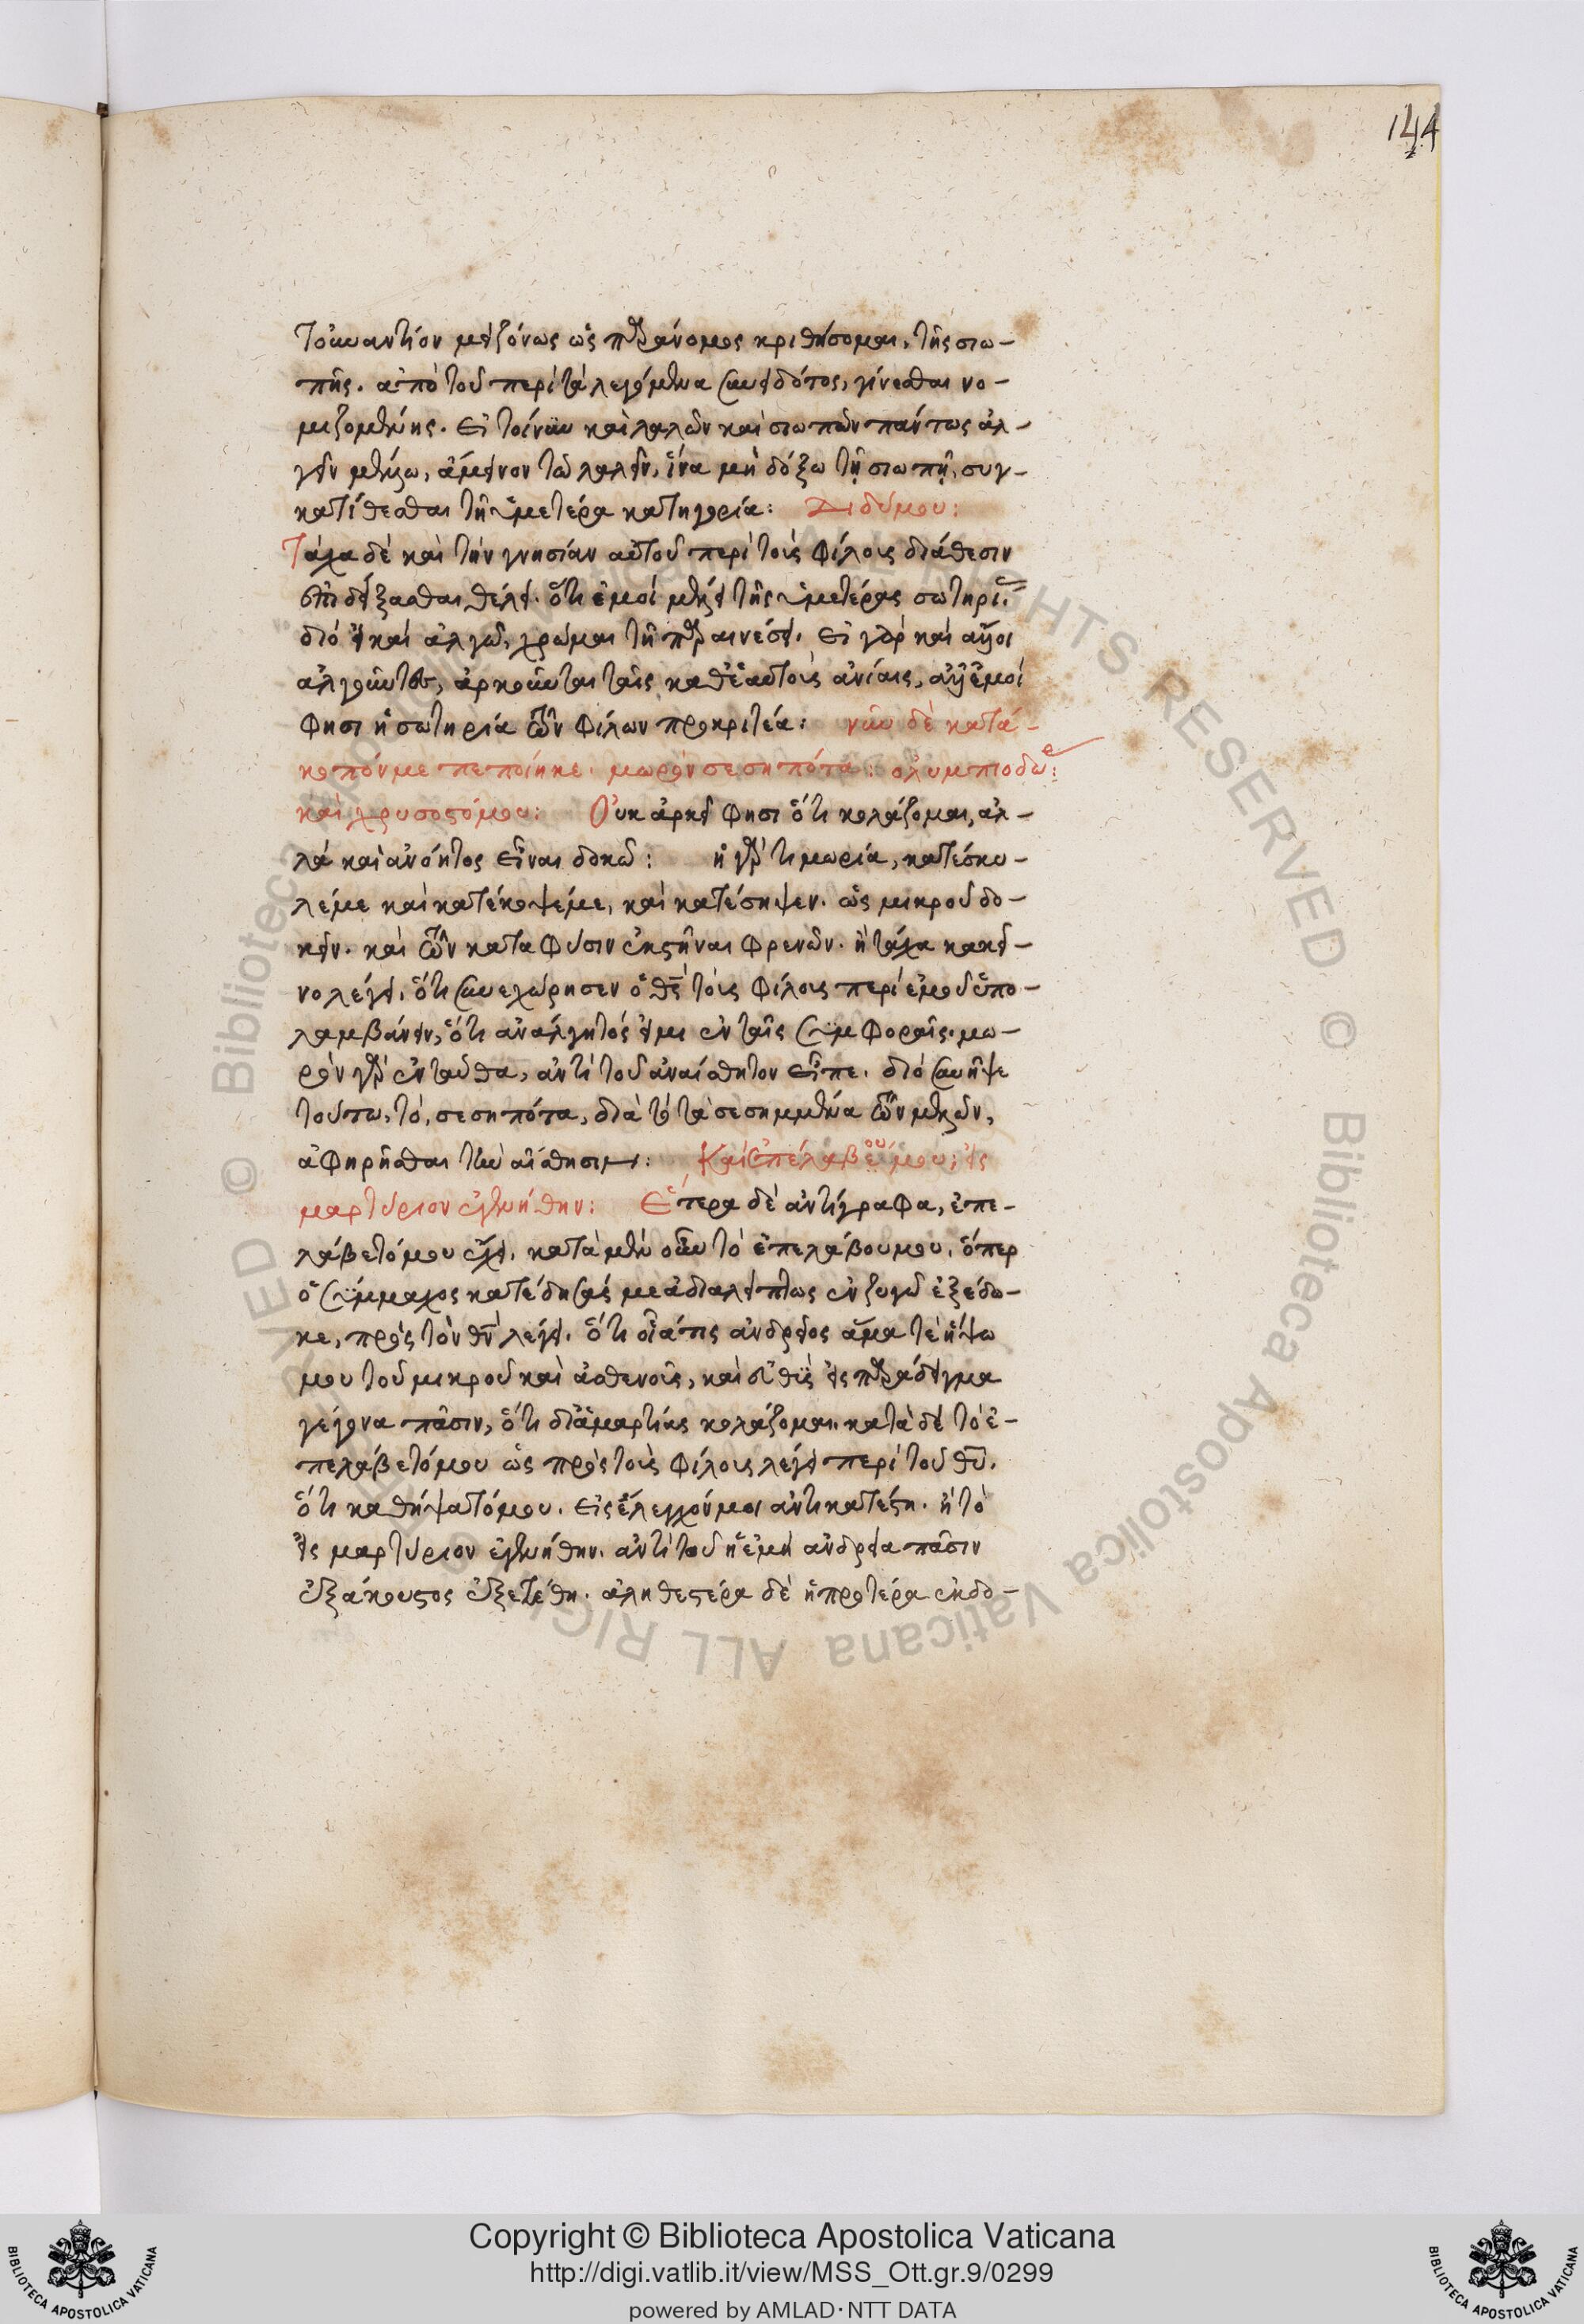 144
τοὐναντίον μειζόνως ὡς παράνομος κριθήσομαι, τῆς σιω-
πῆς. ἀπὸ τοῦ περὶ τὰ λεγόμενα συνειδότος, γίνεσθαι νο-
μιζομένης. Εἰ τοίνυν καὶ λαλῶν καὶ σιωπῶν πάντως ἀλ-
γεῖν μέλλω, ἄμεινον τῶ λαλεῖν, ἵνα μὴ δόξω τῇ σιωπῇ, συγ-
κατίθεσθαι τῆ ὑμετέρα κατηγορία: Διδύμου:
Τάχα δὲ καὶ τὴν γνησίαν αὐτοῦ περὶ τοὺς φίλους διάθεσιν
ἐπιδείξασθαι θέλει. ὅτι ἐμοὶ μέλει τῆς ὑμετέρας σωτηρίας.
διὸ εἰ καὶ ἀλγῶ, χρῶμαι τῆ παραινέσει. Εἰ γὰρ καὶ ἄλλοι
ἀλγοῦντες, ἀρκοῦνται ταῖς καθ' ἑαυτοὺς ἀνίαις, ἀλλ' ἐμοί
φησι ἡ σωτηρία τῶν φίλων προκριτέα: νῦν δὲ κατά-
κοπόν με πεποίηκε. μωρὸν σεσηπότα: ὀλυμπιοδώρ:
καὶ χρυσοστόμου: Οὐκ ἀρκεῖ φησι ὅτι κολάζομαι, ἀλ-
λὰ καὶ ἀνόητος εἶναι δοκῶ: ἡ γὰρ τιμωρία, κατέσκυ-
λέ με καὶ κατέκοψέ με, καὶ κατέσηψεν. ὡς μικροῦ δο-
κεῖν. καὶ τῶν κατὰ φύσιν ἐκστῆναι φρενῶν. ἢ τάχα κακεῖ-
νο λέγει, ὅτι συνεχώρησεν ὁ θς τοῖς φίλοις περὶ ἐμοῦ ὑπο-
λαμβάνειν, ὅτι ἀνάλγητός εἰμι ἐν ταῖς συμφοραῖς. μω-
ρὸν γὰρ ἐνταῦθα, ἀντὶ τοῦ ἀναίσθητον εἶπε. διὸ συνῆψε
τούτω, τὸ, σεσηπότα, διὰ τὸ τὰ σεσημμένα τῶν μελῶν,
ἀφηρῆσθαι τὴν αἴσθησιν: Καὶ ἐπελάβου μου; εἰς
μαρτύριον ἐγενήθην: Ἕτερα δὲ ἀντίγραφα, ἐπε-
λάβετό μου ἔχει. κατὰ μὲν οὖν τὸ ἐπελάβου μου, ὅπερ
ὁ Σύμμαχος κατέδησάς με ἀδιαλείπτως ἐν ζυγῶ ἐξέδω-
κε, πρὸς τὸν θν λέγει. ὅτι οἷά τις ἀνδρεῖος ἅμα τε ἥψω
μου τοῦ μικροῦ καὶ ἀσθενοῖς, καὶ εὐθὺς εἰς παράδειγμα
γέγονα πᾶσιν, ὅτι δι' ἁμαρτίας κολάζομαι. κατὰ δὲ τὸ ἐ-
πελάβετό μου ὡς πρὸς τοὺς φίλους λέγει περὶ τοῦ θυ.
ὅτι καθήψατό μου. Εἰς ἔλεγχόν μοι ἀντικατέστη. ἢ τὸ
εἰς μαρτύριον ἐγενήθην. ἀντὶ τοῦ ἡ ἐμὴ ἀνδρεία πᾶσιν
ἐξάκουστος ἐξετέθη. ἀληθεστέρα δὲ ἡ προτέρα ἐκδο-
Copyright © Biblioteca Apostolica Vaticana
http://digi.vatlib.it/view/MSS_Ott.gr.9/0299
powered by AMLAD · NTT DATA
BIBLIOTECA APOSTOLICA VATICANA
BIBLIOTECA APOSTOLICA VATICANA